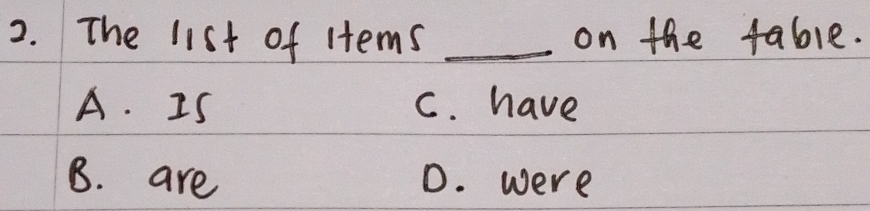 2. The list of items ____ on the table.
A. Is C. have
B. are D. were